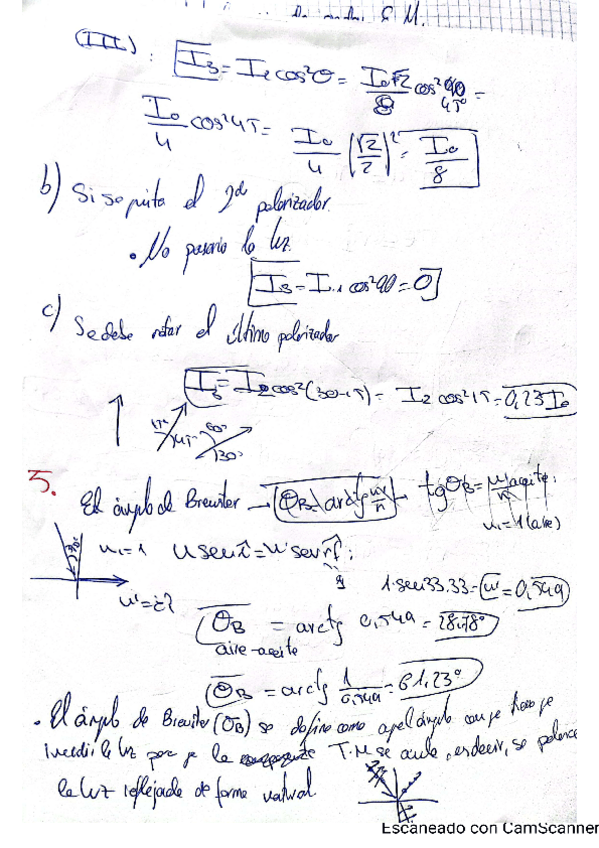 (III) : I₃ = I₂ cos²θ = I₀√2/8 cos² 45° =
I₀/4 cos²45 = I₀/4 (√2/2)² = I₀/8
b) Si se quita el 2do polarizador
• No pasaria la luz
I₃ = I₁ cos²90 = 0
c) Se debe rotar el último polarizador
I₃ = I₂ cos²(30-15) = I₂ cos²15 = 0,23 I₀
15° 45° 60° 30°
5.
El ángulo de Brewster → θB = arctg n'/n → tgθB = n'aceite/n ;
n₁ = 1 (aire)
n₁ = 1 n sen î = n' sen r̂f ;
1·sen33.33 = n' = 0,549
n' = ¿?
θB = arctg 0,549 = 28,78°
aire-aceite
θB = arctg 1/0,549 = 61,23°
• El ángulo de Brewster (θB) se define como aquel ángulo que
incidir la luz para que la T.M se anule, es decir, se polariza
la luz reflejada de forma
Escaneado con CamScanner